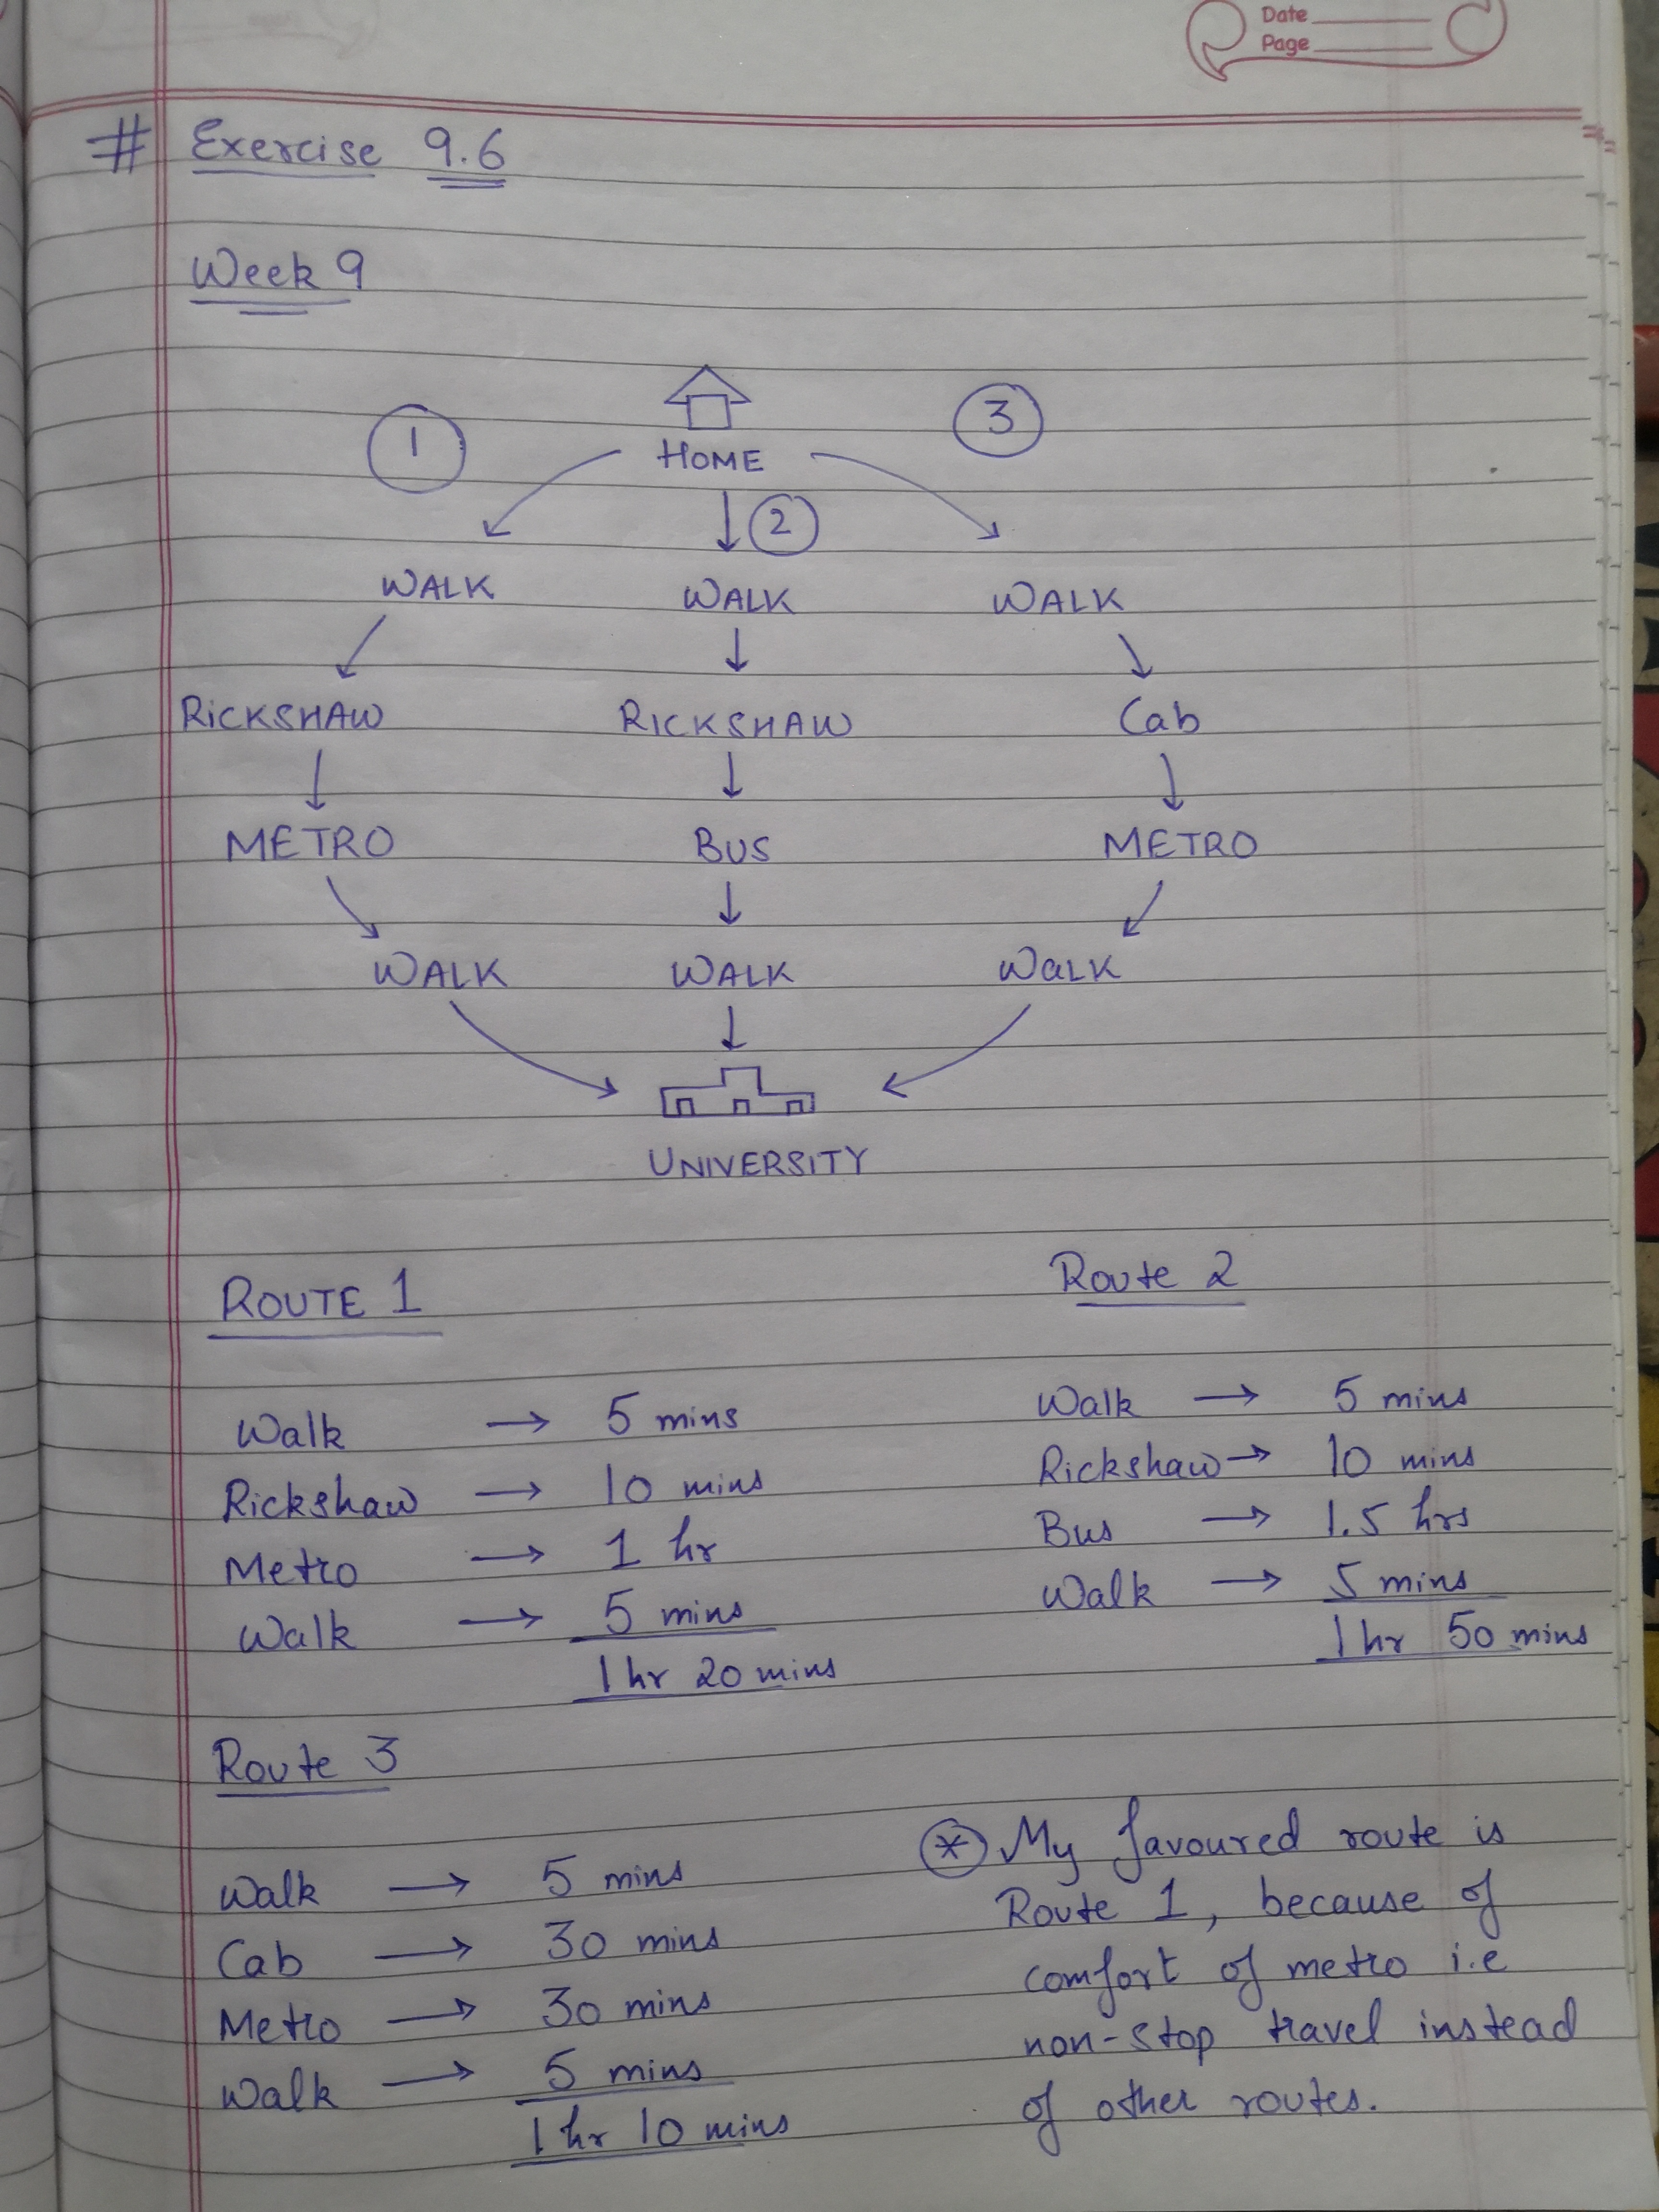 Date
Page
# Exercise 9.6
Week 9
1
3
HOME
2
WALK WALK WALK
RICKSHAW RICKSHAW Cab
METRO BUS METRO
WALK WALK WALK
UNIVERSITY
ROUTE 1
Walk → 5 mins
Rickshaw → 10 mins
Metro → 1 hr
Walk → 5 mins
1 hr 20 mins
Route 2
Walk → 5 mins
Rickshaw → 10 mins
Bus → 1.5 hrs
Walk → 5 mins
1 hr 50 mins
Route 3
Walk → 5 mins
Cab → 30 mins
Metro → 30 mins
Walk → 5 mins
1 hr 10 mins
* My favoured route is
Route 1, because of
comfort of metro i.e
non-stop travel instead
of other routes.